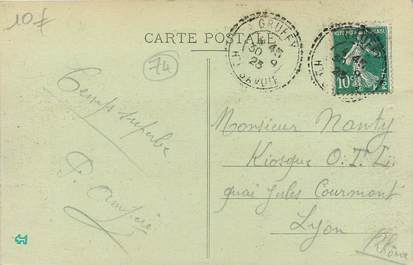 10 F
CARTE POSTALE
74
GRUFFY
Hte SAVOIE
23 9
10
Temps superbe
Monsieur Nanty
Kiosque O.T.L.
quai Jules Courmont
Lyon
Rhône